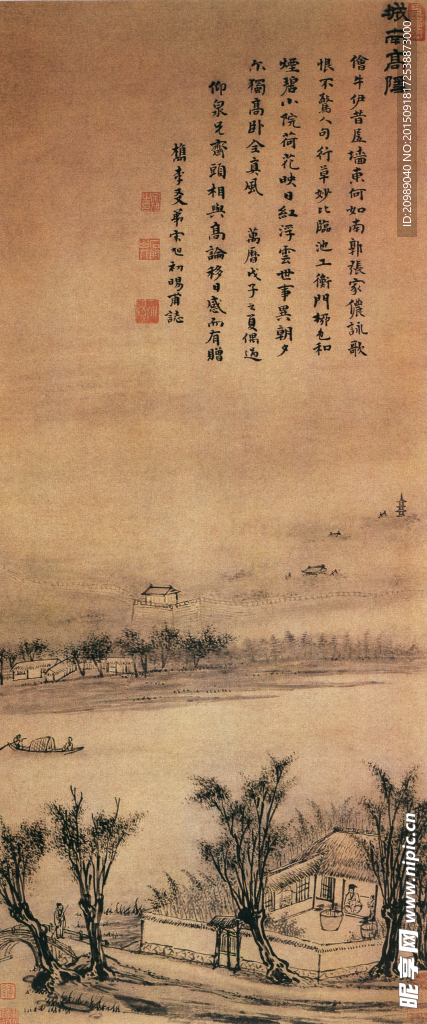 城南高隱
儈牛伊昔居墻東何如南郭張家儂詠歌
恨不驚人句行草妙比臨池工衡門柳色和
煙碧小院荷花映日紅浮雲世事異朝夕
尓獨高卧全真風 萬曆戊子之夏偶過
仰泉兄齋頭相與高論移日感而有贈
檇李友弟宋旭初暘甫誌
ID:20989040 NO:20150918172538873000
昵享网 www.nipic.cn